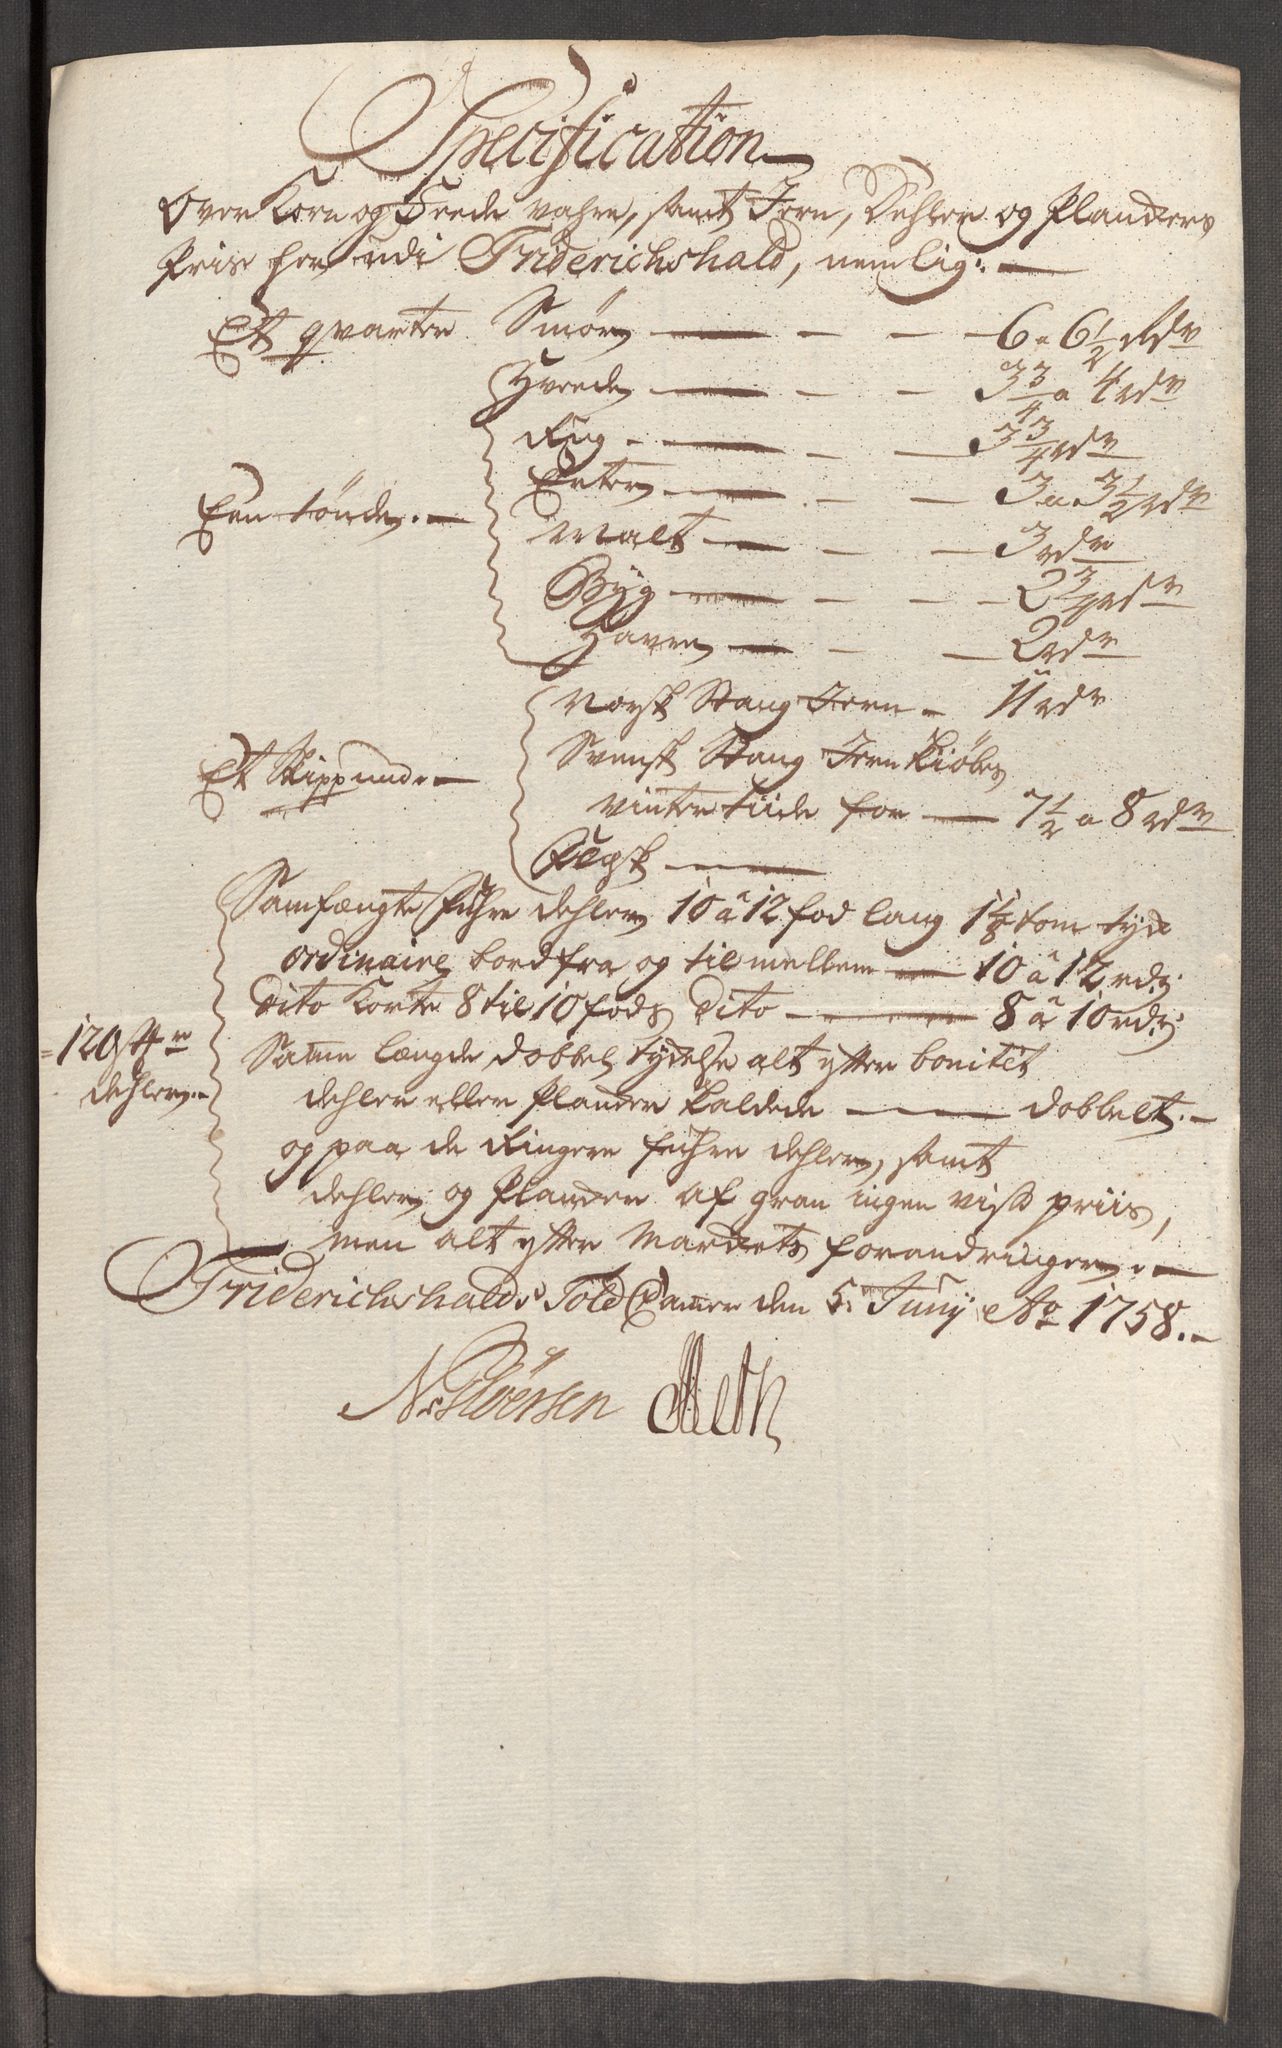 Specification
Over Korn og Feede vahre, samt Jern, Dehler og Planckers
Priis her udi Friderichshald, nemlig:
Et qvarter Smør 6 a 6 1/2 Rdr
Hvede 3 3/4 a 4 rdr
Rug 3 3/4 rdr
Erter 3 a 3 1/2 rdr
Een tønde
Malt 3 rdr
Byg 2 3/4 rdr
Havre 2 rdr
Norsk Stang Jern 11 rdr
Svensk Stang Jern Kiøbes
Et Skippund
vinter tiide for 7 1/2 a 8 rdr
Samfængte Fuhre dehler 10 â 12 fod lang 1 1/8 tom tyk
ordinaire bord fra og til mellem 10 â 12 rdr
Dito Korte 8 til 10 fods Dito 8 â 10 rdr
120 st
dehler
Samme længde dobbel tydelse alt efter bonitet
dehler eller Plancker kaldede dobbelt
og paa de Ringere fuhre dehler, samt
dehler og Plancker af gran ingen viss priis,
men alt efter Marckets forandringer
Friderichshalds Told Camer den 5 Junij Ao 1758.